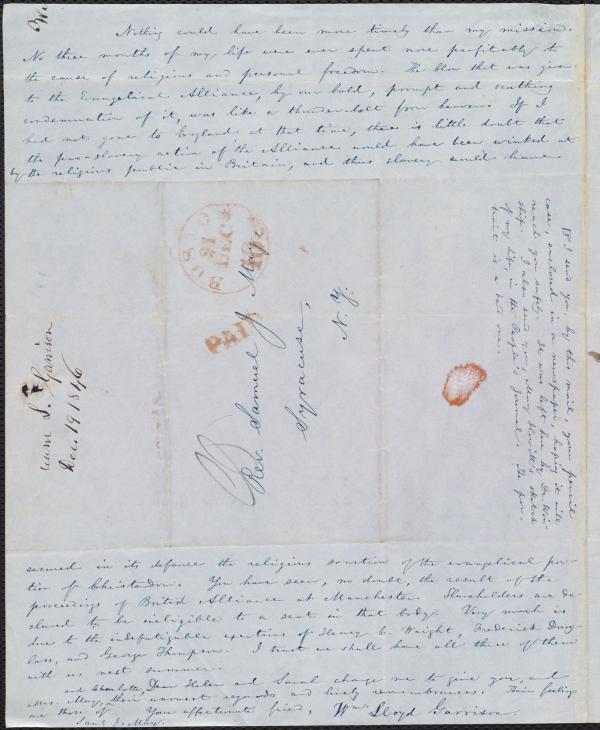 Nothing could have been more timely than my mission.
No three months of my life were ever spent more profitably to
the cause of religious and personal freedom. The blow that was given
to the Evangelical Alliance, by our bold, prompt and scathing
condemnation of it, was like a thunder-bolt from heaven. If I
had not gone to England at that time, there is little doubt that
the pro-slavery action of the Alliance would have been winked at
by the religious public in Britain, and thus slavery would have
I send you, by this mail, your pencil
case, enclosed in a newspaper, hoping it will
reach you safely. It was left here by Dr.
I also send you Mary Howitt's sketch
of my life, in the People's Journal. The por-
trait is a bad one.
BOSTON
DEC
PAID
Rev. Samuel J. May,
Syracuse,
N. Y.
Wm. L. Garrison
Dec. 19 1846
secured in its defence the religious sanction of the evangelical por-
tion of Christendom. You have seen, no doubt, the result of the
proceedings of British Alliance at Manchester. Slaveholders are de-
clared to be ineligible to a seat in that body. Very much is
due to the indefatigable exertions of Henry C. Wright, Frederick Doug-
lass, and George Thompson. I trust we shall have all three of them
with us next summer.
and Charlotte, Dear Helen and Sarah charge me to give you, and
Mrs. May, their warmest regards and lively remembrances. Their feelings
are those of Your affectionate friend, Wm. Lloyd Garrison.
Saml J. May.